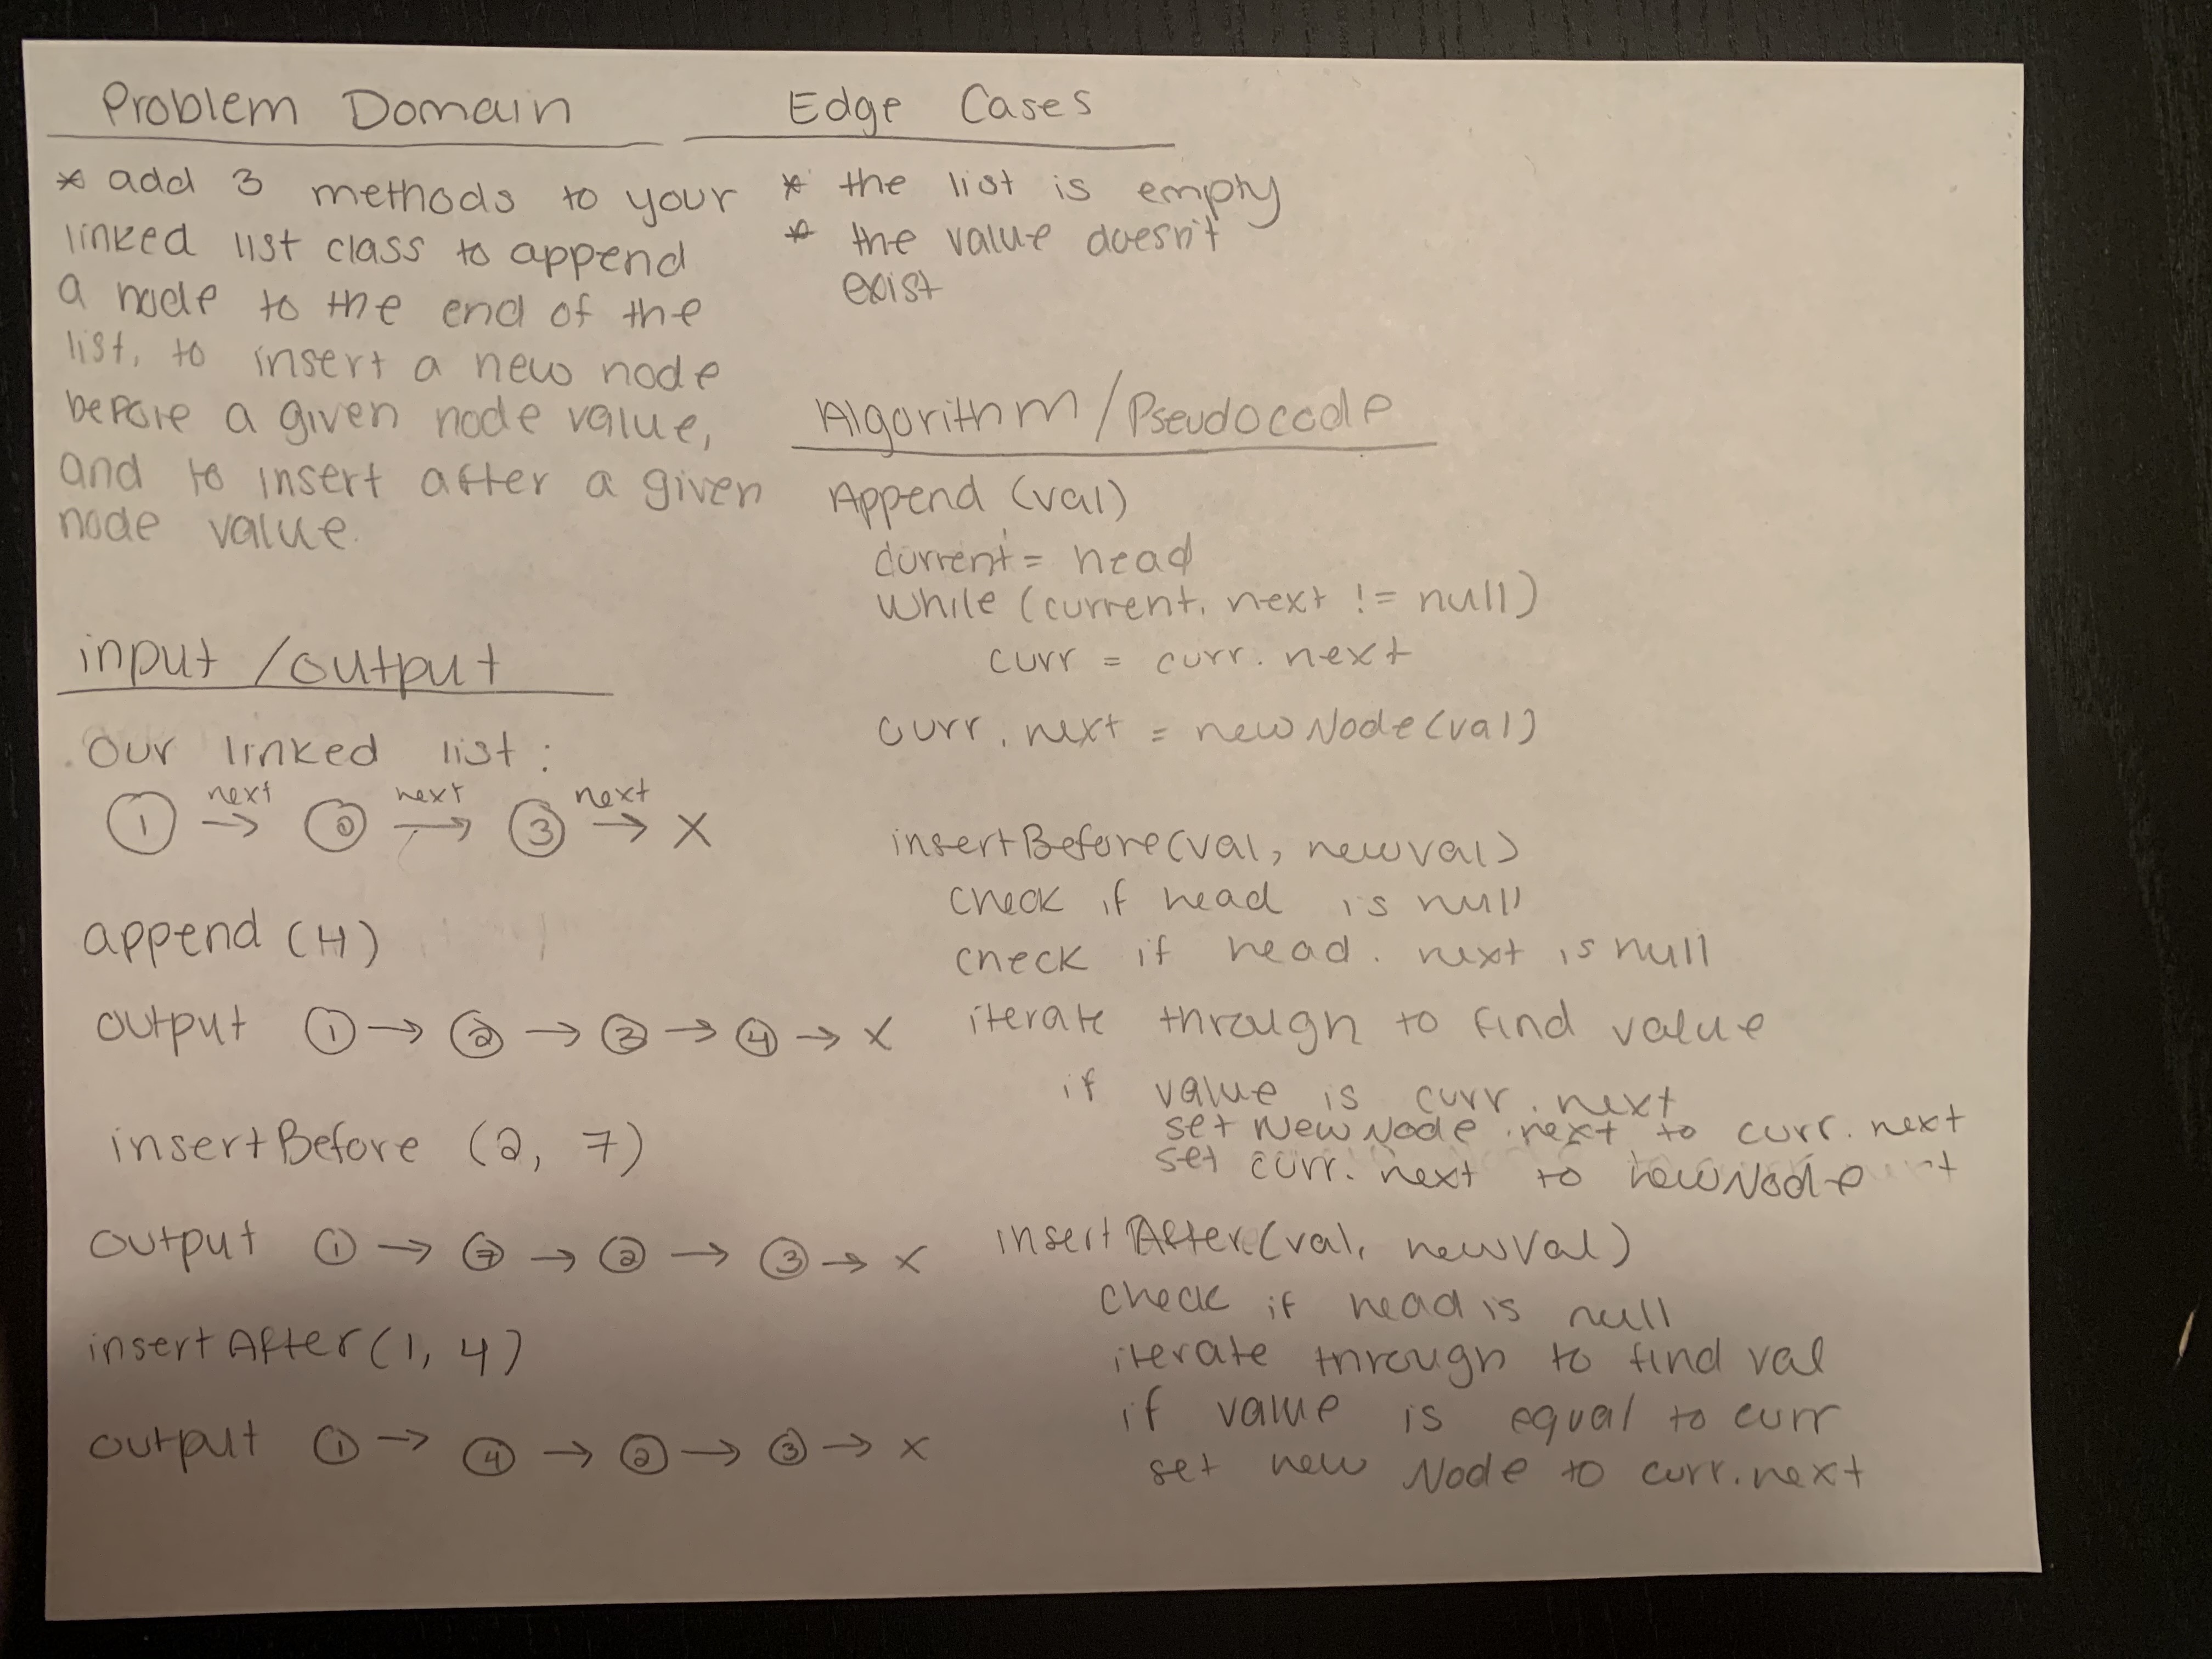 Problem Domain
* add 3 methods to your
linked list class to append
a node to the end of the
list, to insert a new node
before a given node value,
and to insert after a given
node value.
input / output
Our linked list :
next next next
1 → 2 → 3 → X
append (4)
output 1 → 2 → 3 → 4 → X
insertBefore (2, 7)
output 1 → 7 → 2 → 3 → X
insertAfter (1, 4)
output 1 → 4 → 2 → 3 → X
Edge Cases
* the list is empty
* the value doesn't
exist
Algorithm / Pseudocode
Append (val)
current = head
while (current. next != null)
curr = curr. next
curr. next = new Node (val)
insertBefore (val, newval)
check if head is null
check if head. next is null
iterate through to find value
if value is curr. next
set NewNode. next to curr. next
set curr. next to newNode
insertAfter (val, newVal)
check if head is null
iterate through to find val
if value is equal to curr
set new Node to curr.next